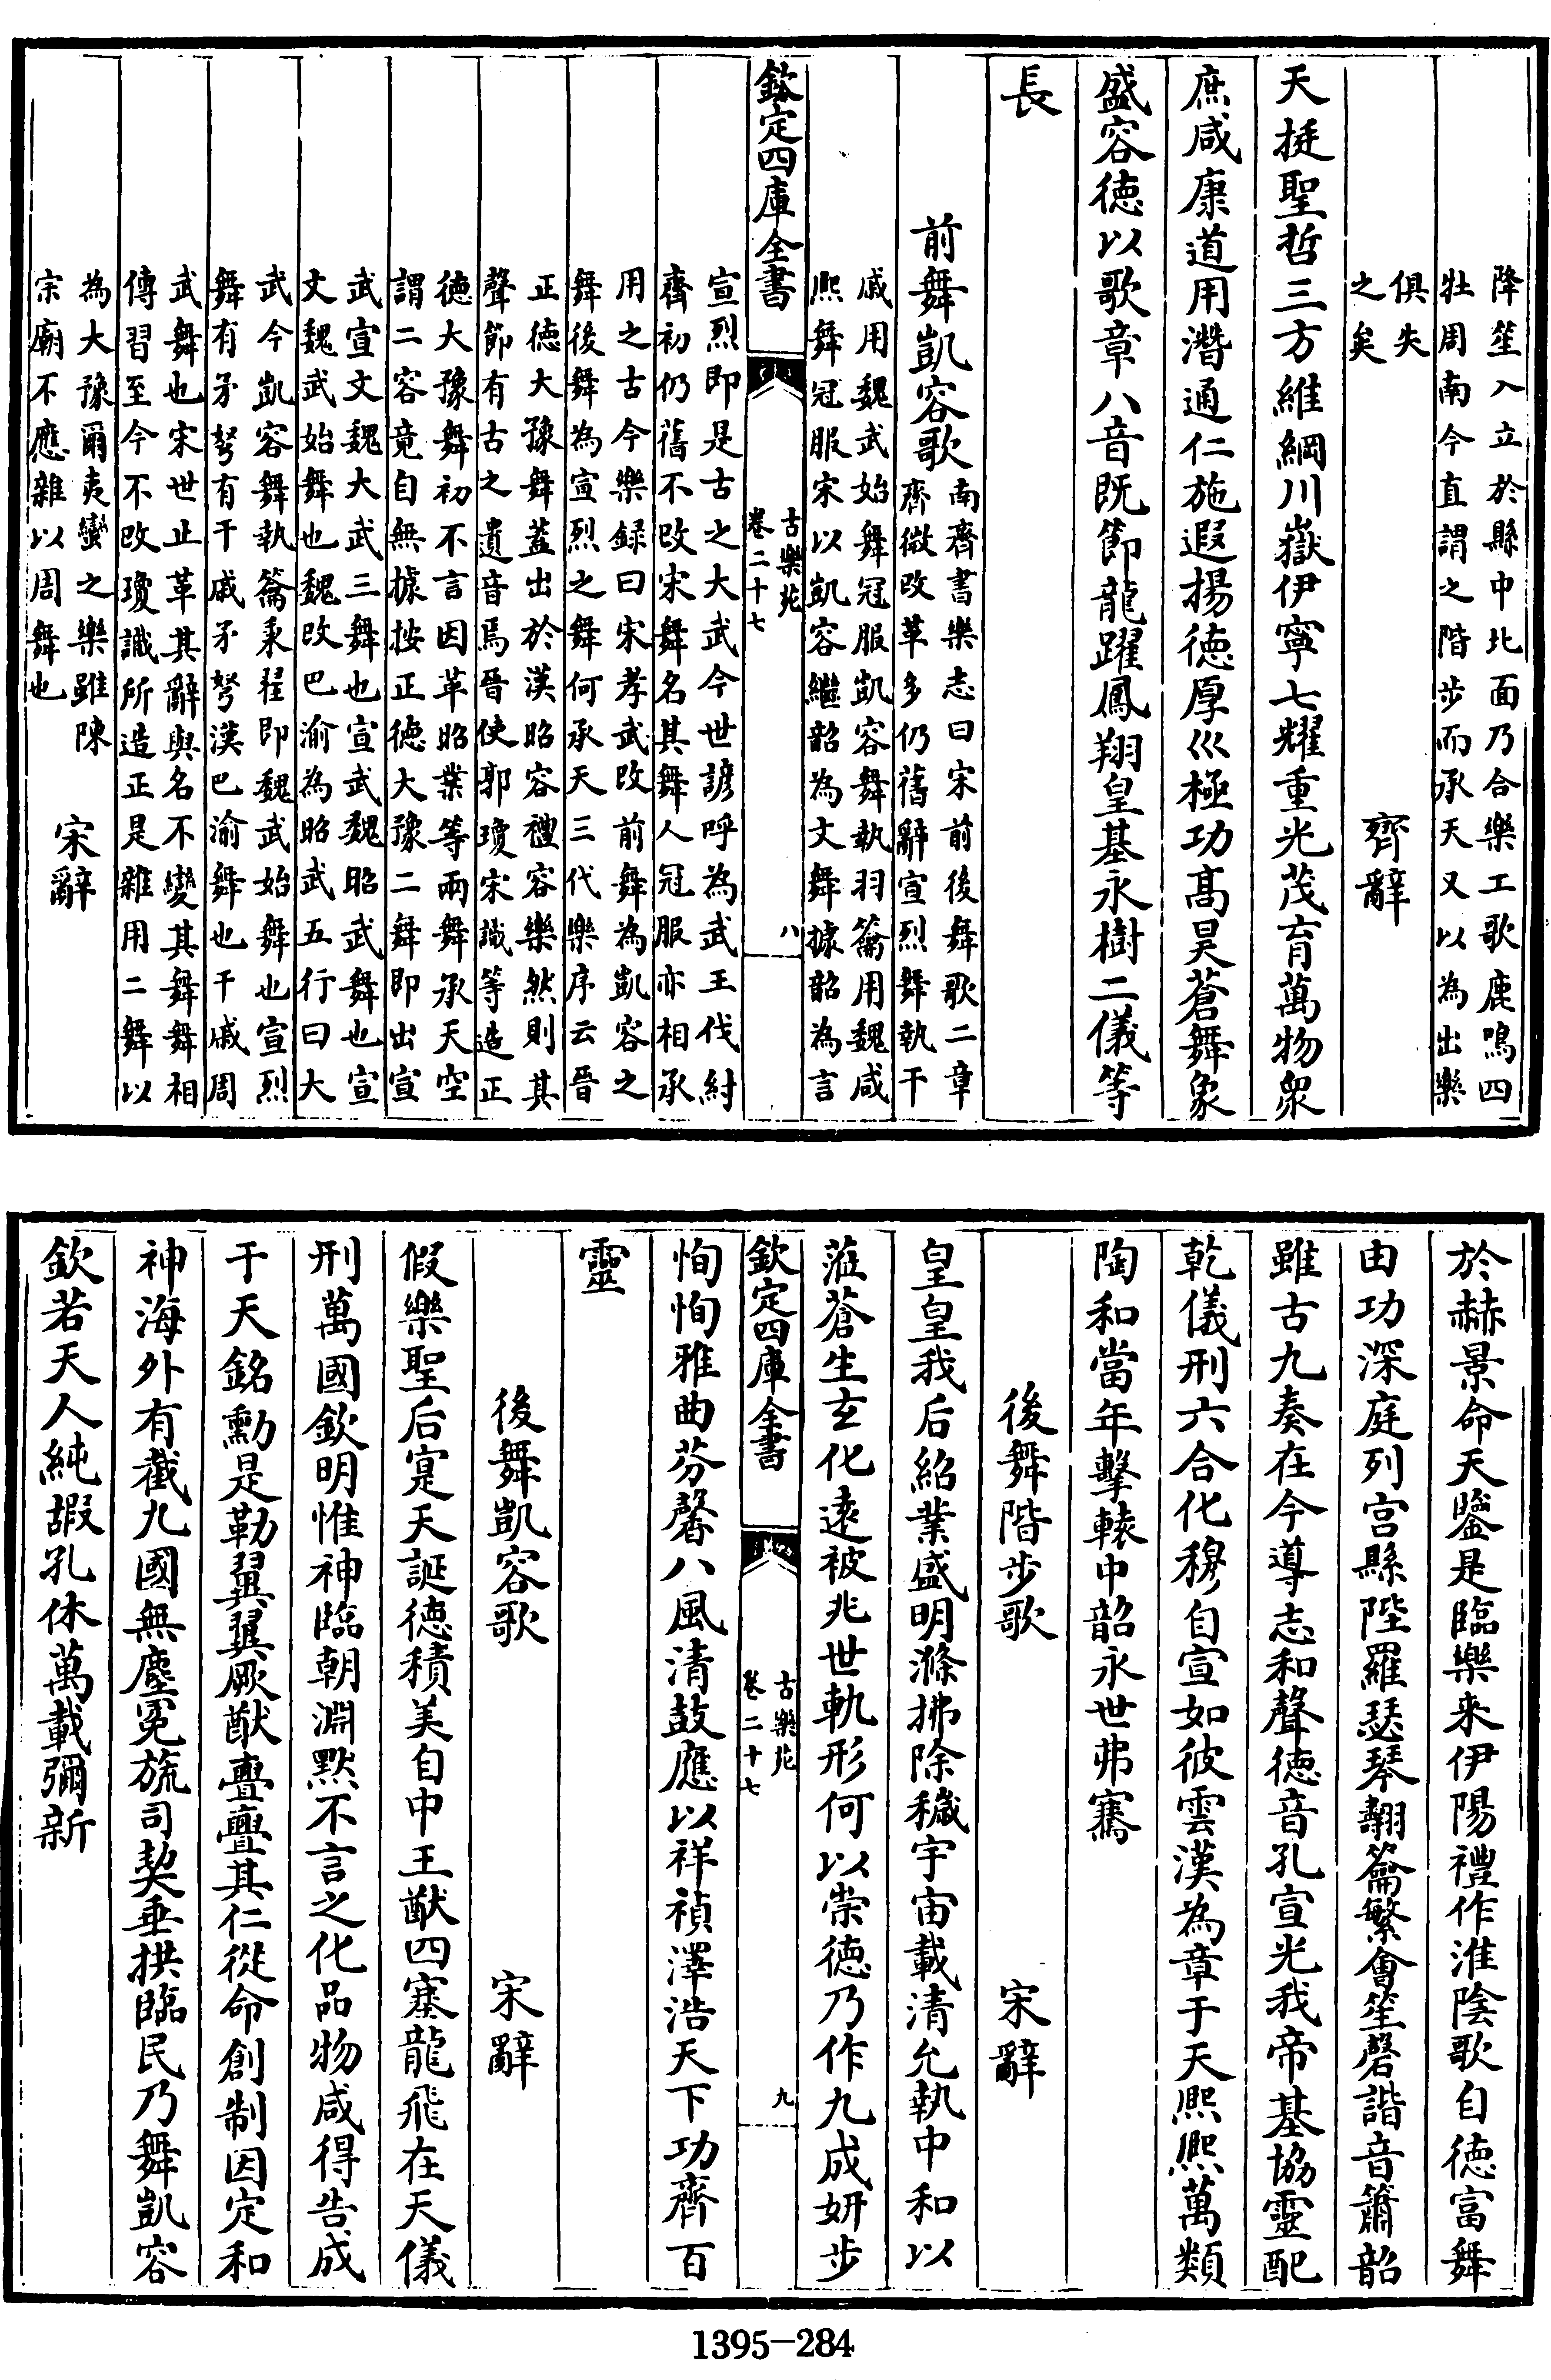 降笙入立於縣中北面乃合樂工歌鹿鳴四
牡周南今直謂之階步而承天又以為出樂
俱失
之矣
齊辭
天挺聖哲三方維綱川嶽伊寧七耀重光茂育萬物衆
庶咸康道用潛通仁施遐揚德厚巛極功高昊蒼舞象
盛容德以歌章八音既節龍躍鳳翔皇基永樹二儀等
長
前舞凱容歌
南齊書樂志曰宋前後舞歌二章
齊微改革多仍舊辭宣烈舞執干
戚用魏武始舞冠服凱容舞執羽籥用魏咸
熙舞冠服宋以凱容繼韶為文舞據韶為言
欽定四庫全書
古樂苑
卷二十七
八
宣烈即是古之大武今世諺呼為武王伐紂
齊初仍舊不改宋舞名其舞人冠服亦相承
用之古今樂録曰宋孝武改前舞為凱容之
舞後舞為宣烈之舞何承天三代樂序云晉
正德大豫舞蓋出於漢昭容禮容樂然則其
聲節有古之遺音焉晉使郭瓊宋識等造正
德大豫舞初不言因革昭業等兩舞承天空
謂二容竟自無據按正德大豫二舞即出宣
武宣文魏大武三舞也宣武魏昭武舞也宣
文魏武始舞也魏改巴渝為昭武五行曰大
武今凱容舞執籥秉翟即魏武始舞也宣烈
舞有矛弩有干戚矛弩漢巴渝舞也干戚周
武舞也宋世止革其辭與名不變其舞舞相
傳習至今不改瓊識所造正是雜用二舞以
為大豫爾夷蠻之樂雖陳
宗廟不應雜以周舞也
宋辭
於赫景命天鑒是臨樂来伊陽禮作淮陰歌自德富舞
由功深庭列宫縣陛羅瑟琴翻籥繁會笙磬諧音簫韶
雖古九奏在今導志和聲德音孔宣光我帝基協靈配
乾儀刑六合化穆自宣如彼雲漢為章于天熙熙萬類
陶和當年擊轅中韶永世弗騫
後舞階步歌
宋辭
皇皇我后紹業盛明滌拂除穢宇宙載清允執中和以
蒞蒼生玄化遠被兆世軌形何以崇德乃作九成妍步
欽定四庫全書
古樂苑
卷二十七
九
恂恂雅曲芬馨八風清鼓應以祥禎澤浩天下功齊百
靈
後舞凱容歌
宋辭
假樂聖后寔天誕德積美自中王猷四塞龍飛在天儀
刑萬國欽明惟神臨朝淵默不言之化品物咸得告成
于天銘勳是勒翼翼厥猷亹亹其仁從命創制因定和
神海外有截九國無塵冕旒司契垂拱臨民乃舞凱容
欽若天人純嘏孔休萬載彌新
1395-284